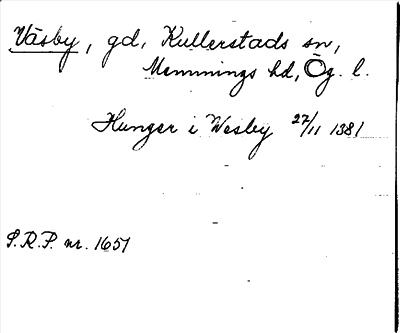 Väsby, gd, Kullerstads sn,
Memmings hd, Ög. l.
Hunger i Wesby 27/11 1381
S.R.P. nr. 1651